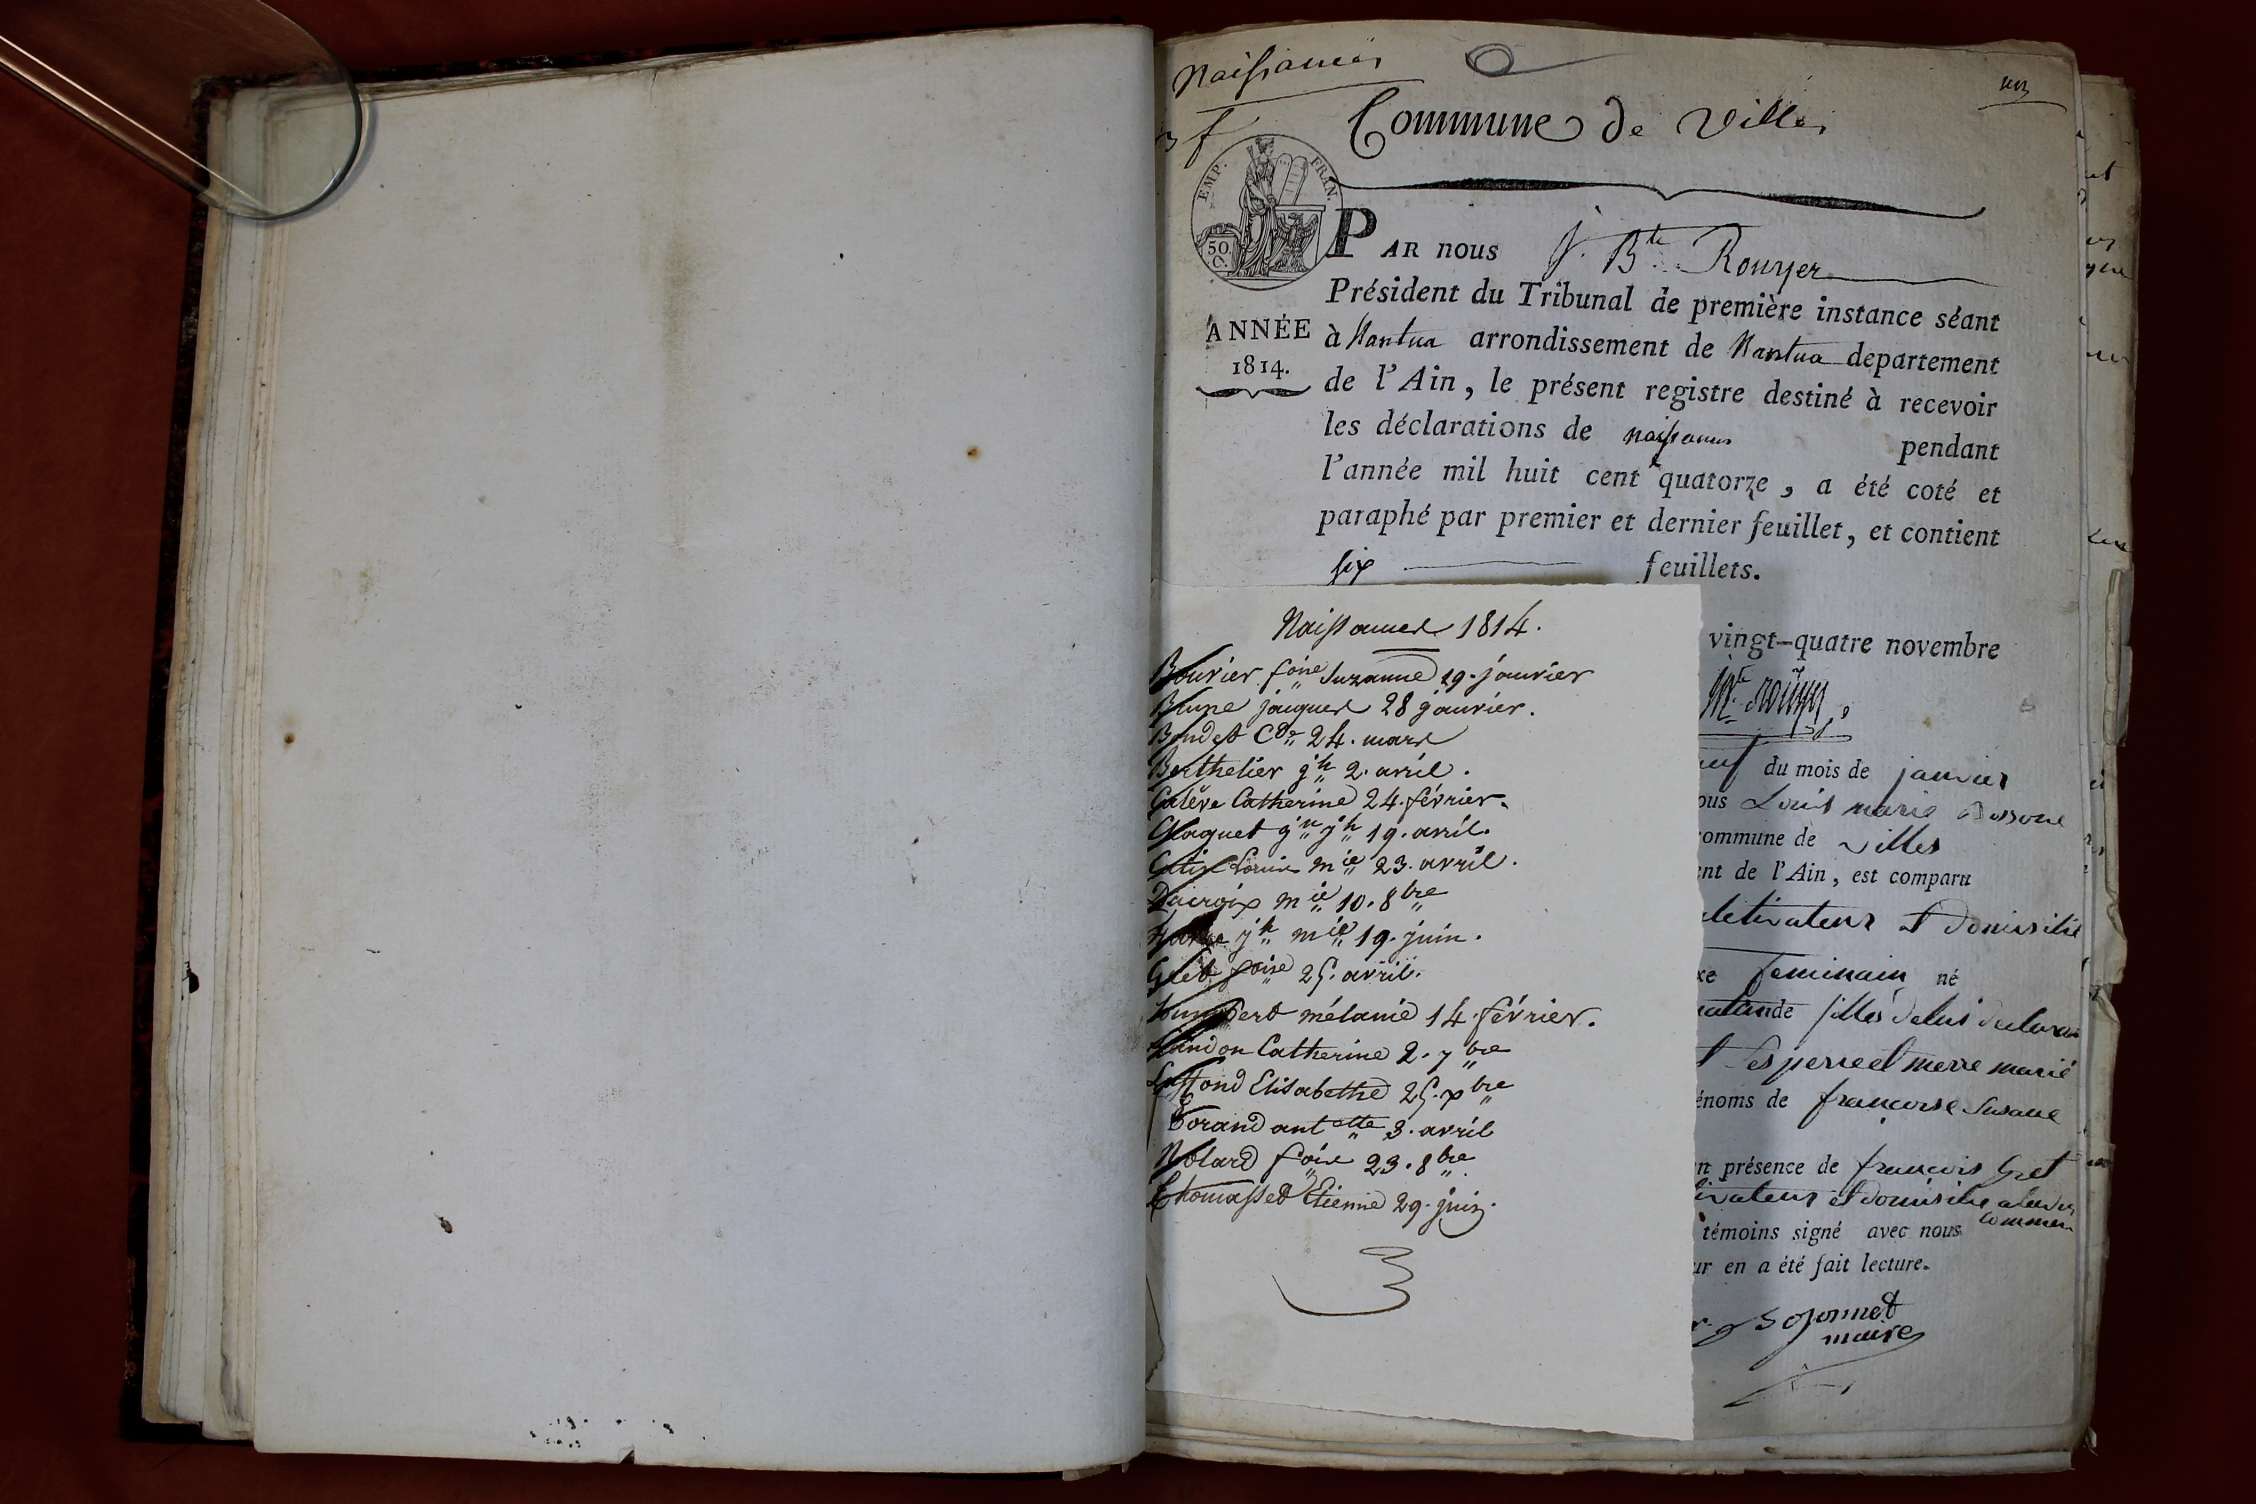 Naissances
Commune de Villes
EMP. FRAN.
50 C.
PAR nous J. Bte Rouyer
Président du Tribunal de première instance séant
ANNÉE
1814.
à Nantua arrondissement de Nantua departement
de l'Ain, le présent registre destiné à recevoir
les déclarations de naissances pendant
l'année mil huit cent quatorze, a été coté et
paraphé par premier et dernier feuillet, et contient
six feuillets.
Naissances 1814.
Bouvier foise Suzanne 19. janvier
Brune jacques 28 janvier.
Bondet Cde 24. mars
Berthelier jh 2. avril.
Catherine 24. février.
jn jh 19. avril.
Louise mie 23. avril.
Ducroix mie 10. 8bre
jh mie 19. juin.
Gret foise 25. avril.
humbert mélanie 14 février.
Catherine 2. 7bre
Elisabethe 25. xbre
antette 3. avril
foise 23. 8bre
Thomasset Etienne 29. juin.
vingt-quatre novembre
du mois de janvier
ous Louis marie
ommune de villes
nt de l'Ain, est comparu
ultivateur et domicilié
xe feminain né
de filles de lui declarant
t Es perre et merre marié
énoms de francoise Susane
n présence de francois Gret
tivateur et domicilie
commun
témoins signé avec nous
ur en a été fait lecture.
maire